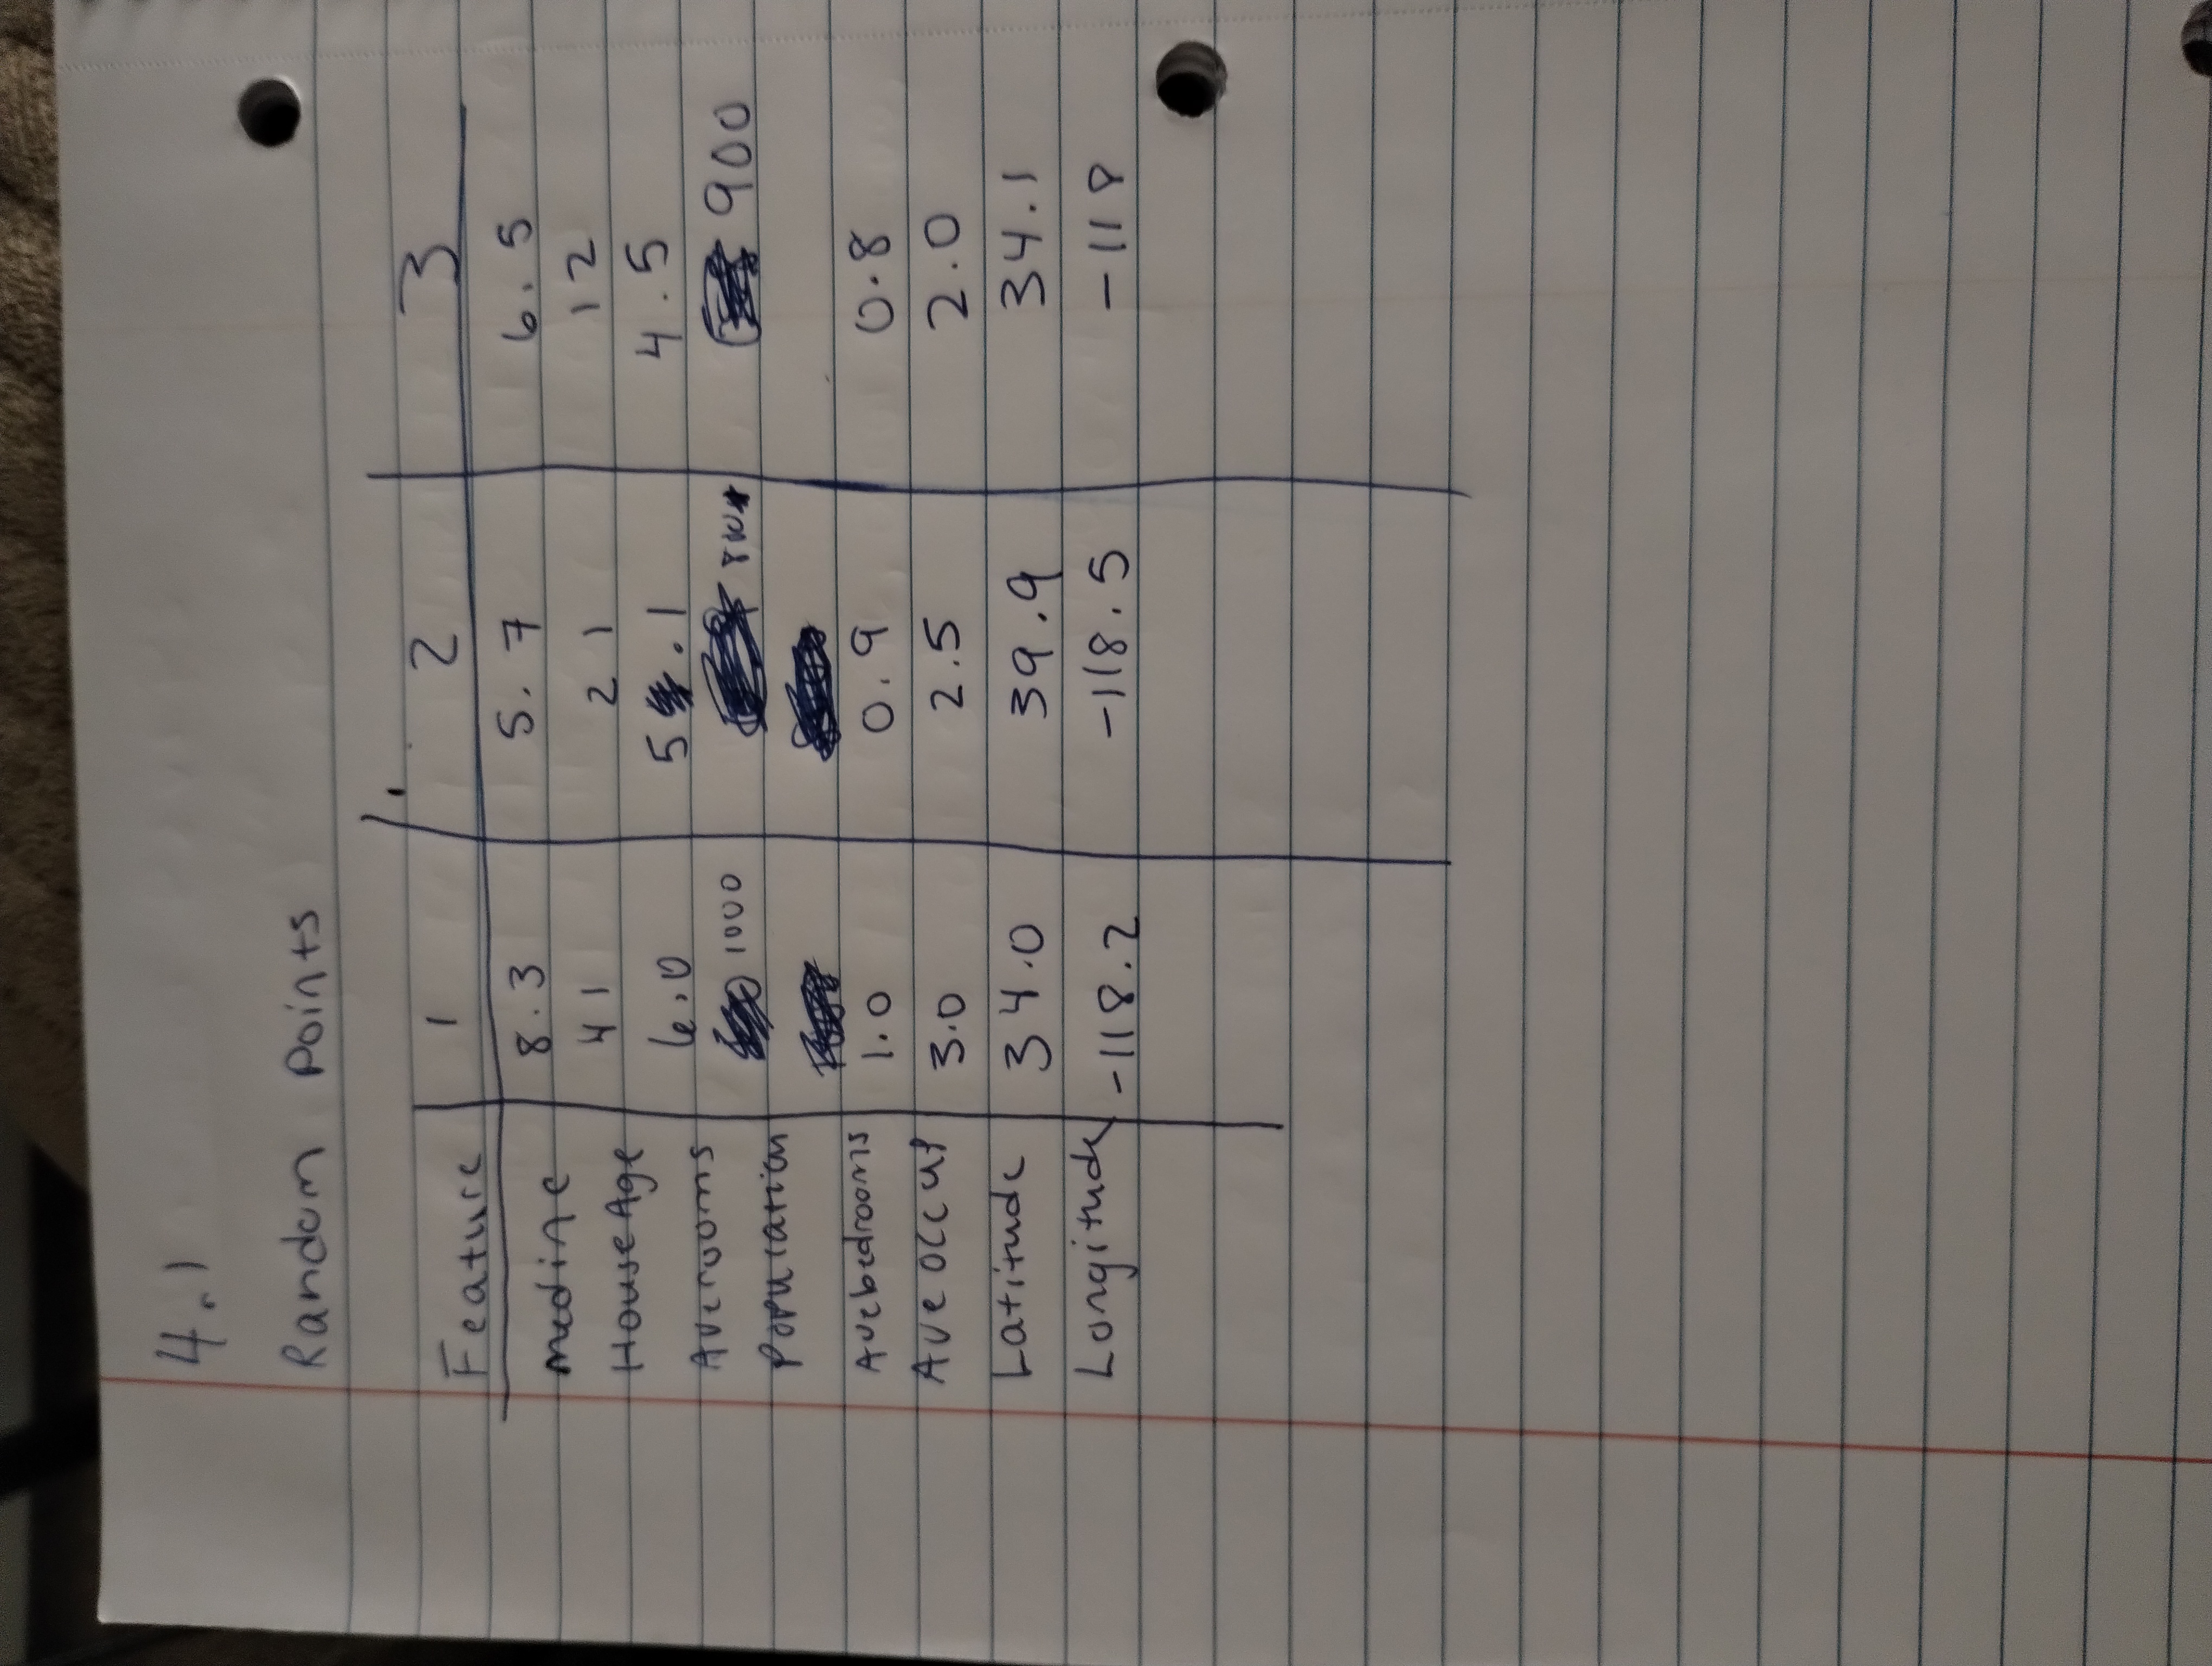 4.1
Random Points
Feature 1 2 3
MedInc 8.3 5.7 6.5
HouseAge 41 21 12
Averooms 6.0 5.1 4.5
Population 1000 900
Avebedrooms 1.0 0.9 0.8
Ave occup 3.0 2.5 2.0
Latitude 34.0 39.9 34.1
Longitude -118.2 -118.5 -118